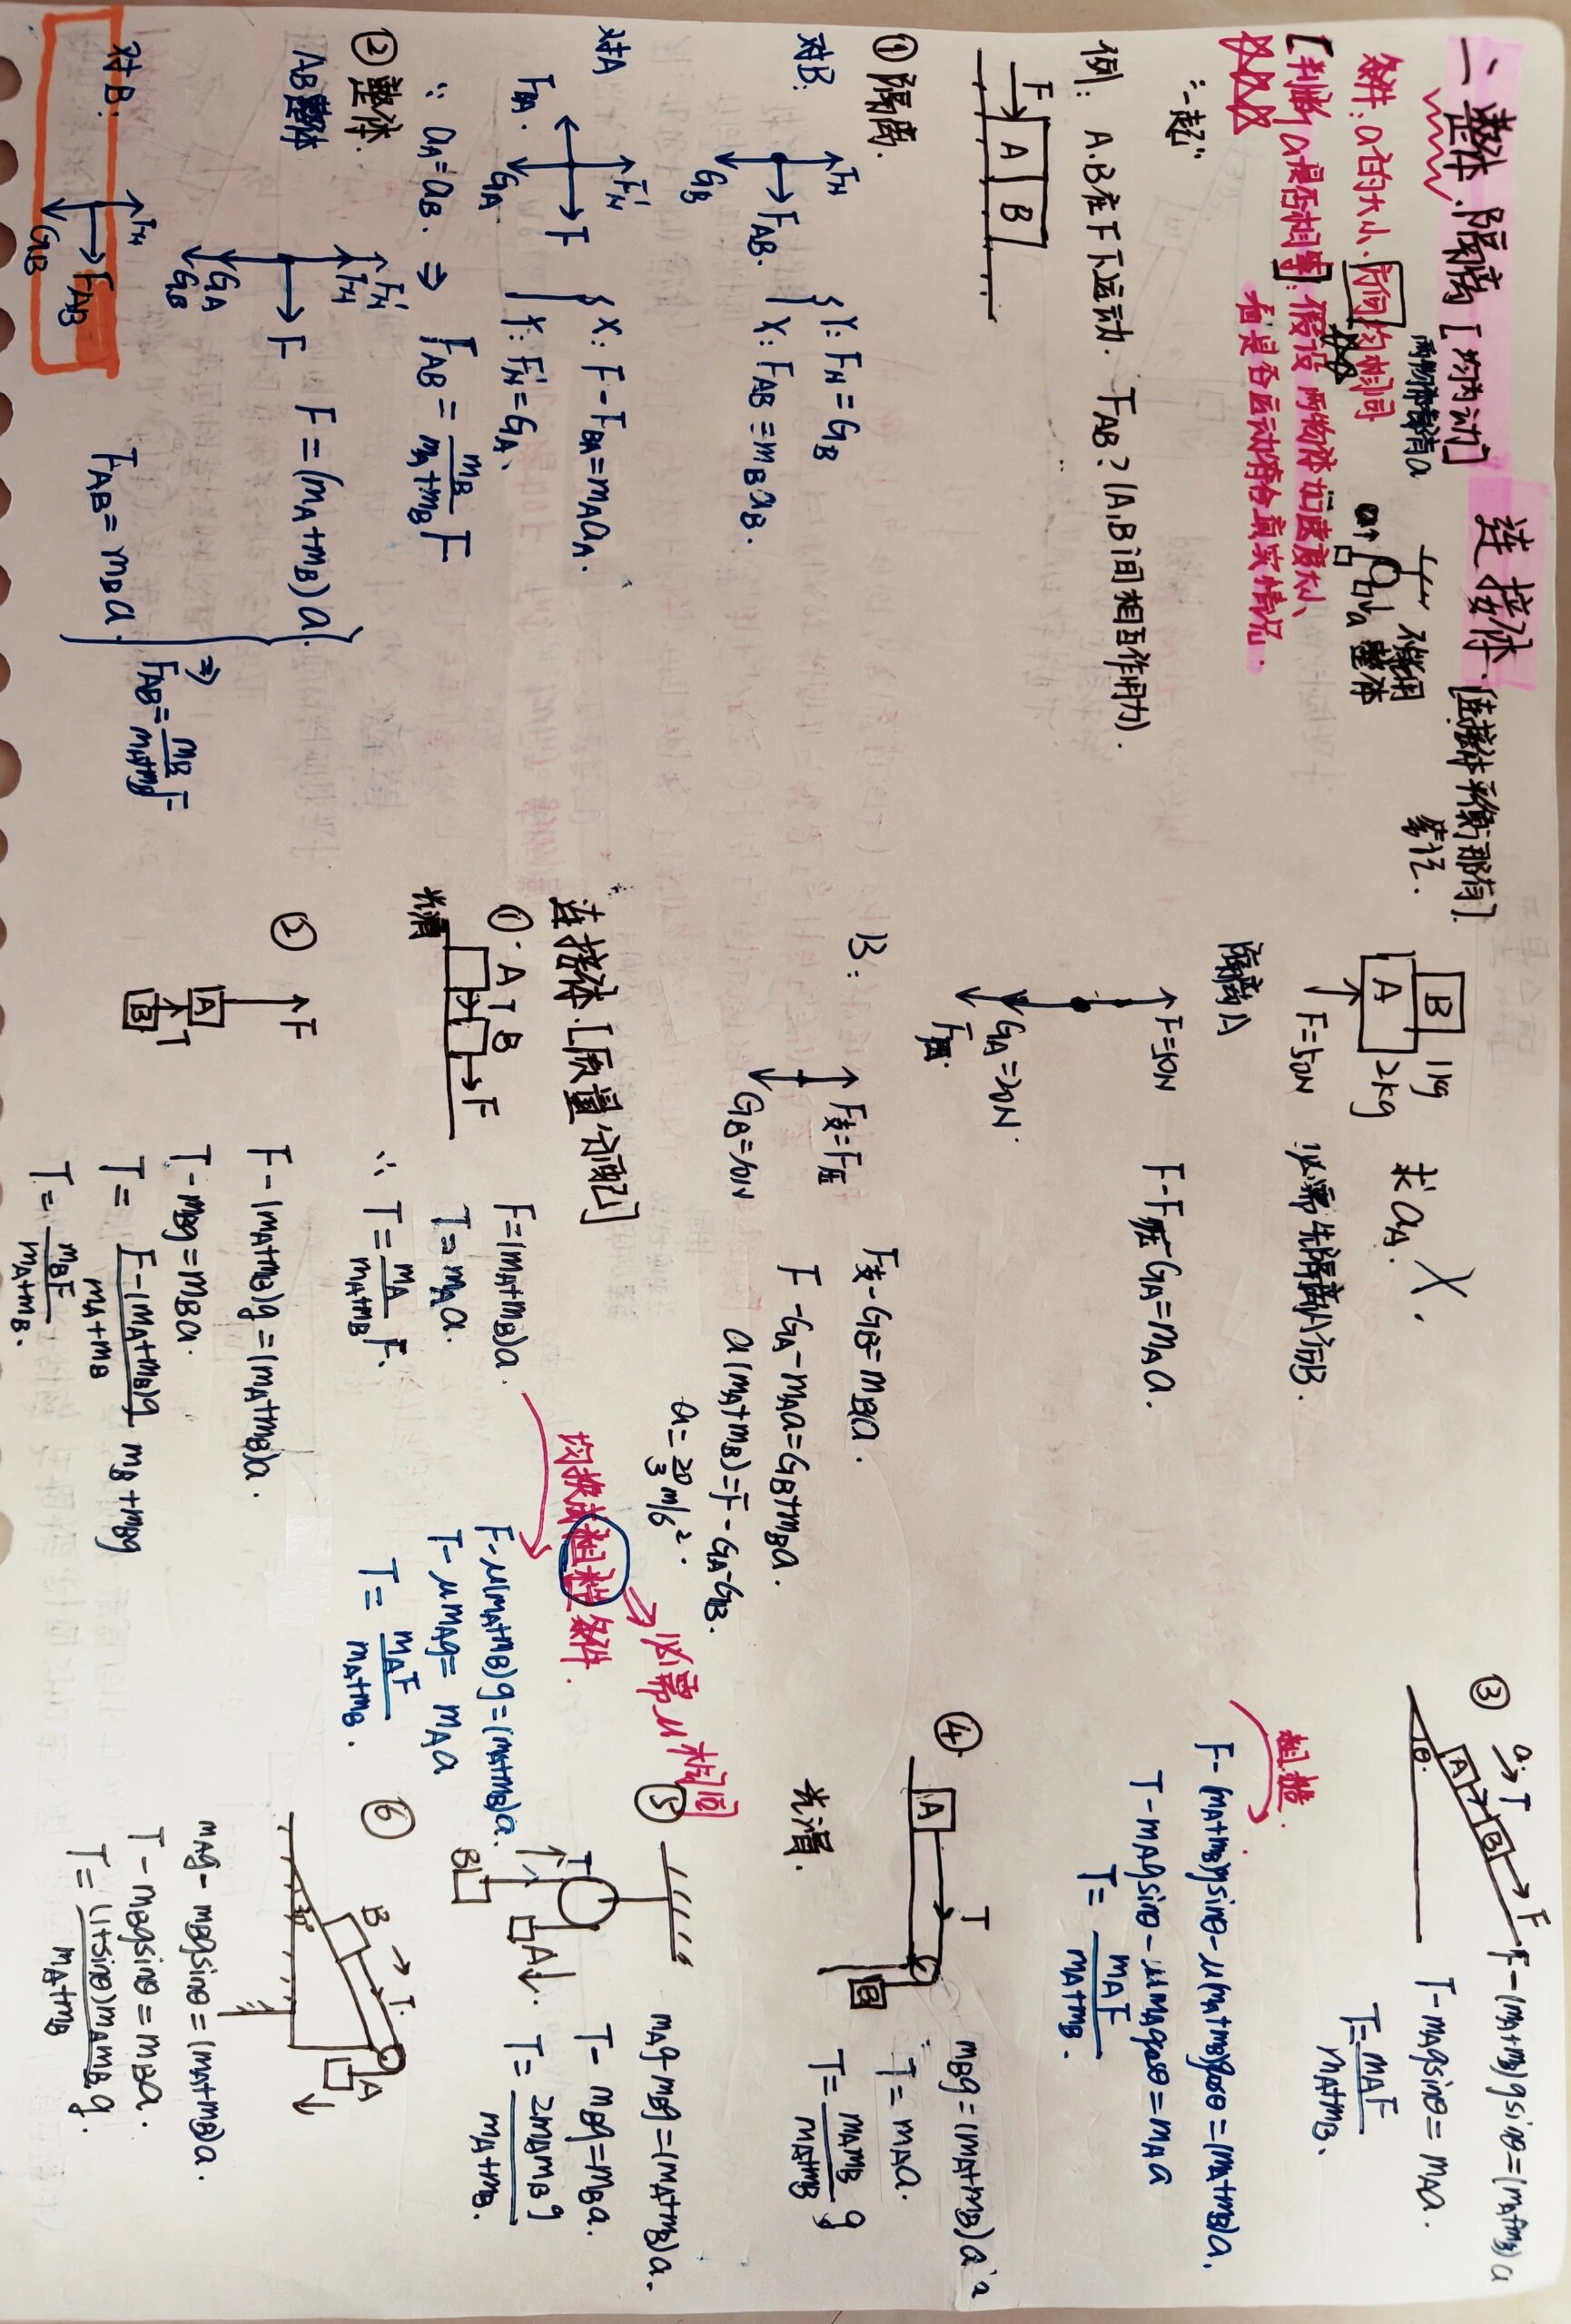 一、整体、隔离 [均为动]
连接体. [连接体平衡那有笔记.
条件: a的大小、方向均相同
两物体都有a
不能用整体
[判断a是否相等]: 假设两物体加速度大小、
看是否运动符合真实情况.
∴一起"
例: A.B在F下运动. FAB?(A,B间相互作用力).
F A B
① 隔离.
对B: FN FAB. GB
{ Y: FN=GB
X: FAB=mBaB.
对A FBA. F'N F GA
{ X: F-FBA=mAaA.
Y: F'N=GA、
∵ aA=aB. ⇒ FAB= mB/(mA+mB) F
② 整体.
AB整体 F'N FN F GA GB
F=(mA+mB)a.
对B: FN FAB GB
FAB=mBa.
⇒ FAB= mB/(mA+mB) F
B 1kg
A 2kg
F=50N
求aA. X.
隔离A 必需先隔离A后B.
F=50N
GA=20N.
F压.
F-F压-GA=mAa.
B: F支=F压
GB=10N
F支-GB=mBa.
F-GA-mAa=GB+mBa.
a(mA+mB)=F-GA-GB.
a= 20/3 m/s².
连接体.[质量分配]
①. A T B F
光滑
F=(mA+mB)a.
T=mAa.
∴ T= mA/(mA+mB) F.
均换成粗糙条件. ⇒ 必需μ相同
F-μ(mA+mB)g=(mA+mB)a.
T-μmAg=mAa
T= mAF/(mA+mB).
② F A T B
F-(mA+mB)g=(mA+mB)a.
T-mBg=mBa.
T= (F-(mA+mB)g)/(mA+mB) mB+mBg
T= mBF/(mA+mB).
③ a. T A B F θ.
F-(mA+mB)gsinθ=(mA+mB)a
T-mAgsinθ=mAa.
T= mAF/(mA+mB).
粗糙.
F-(mA+mB)gsinθ-μ(mA+mB)gcosθ=(mA+mB)a.
T-mAgsinθ-μmAgcosθ=mAa
T= mAF/(mA+mB).
④. A T B
光滑.
mBg=(mA+mB)a
T=mAa.
T= mAmB/(mA+mB) g
⑤ T B A
mAg-mBg=(mA+mB)a.
T-mBg=mBa.
T= 2mAmBg/(mA+mB).
⑥ B T A 30°
mAg-mBgsinθ=(mA+mB)a.
T-mBgsinθ=mBa.
T= (1+sinθ)mAmB/(mA+mB) g.